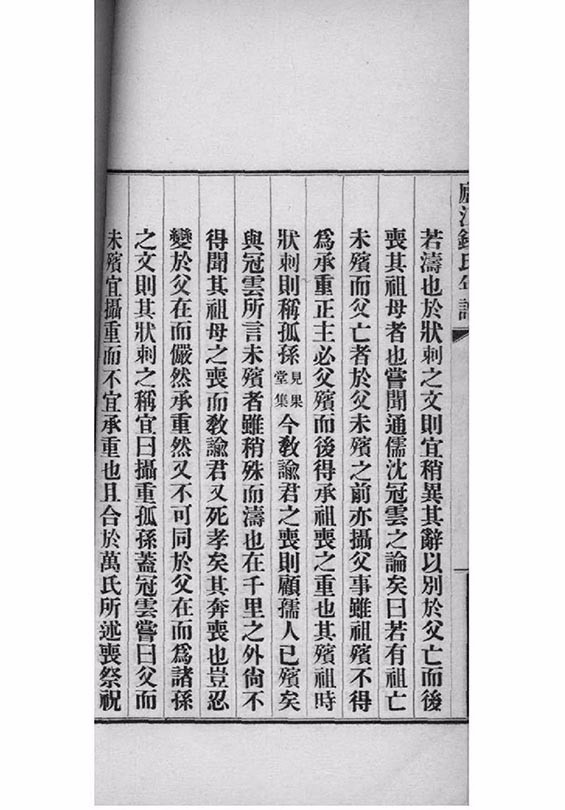 廬江錢氏年譜
若濤也於狀刺之文則宜稍異其辭以別於父亡而後
喪其祖母者也嘗聞通儒沈冠雲之論矣曰若有祖亡
未殯而父亡者於父未殯之前亦攝父事雖祖殯不得
為承重正主必父殯而後得承祖喪之重也其殯祖時
狀刺則稱孤孫見果堂集今敎諭君之喪則顧孺人已殯矣
與冠雲所言未殯者雖稍殊而濤也在千里之外尙不
得聞其祖母之喪而敎諭君又死孝矣其奔喪也豈忍
變於父在而儼然承重然又不可同於父在而為諸孫
之文則其狀刺之稱宜曰攝重孤孫蓋冠雲嘗曰父而
未殯宜攝重而不宜承重也且合於萬氏所述喪祭祝